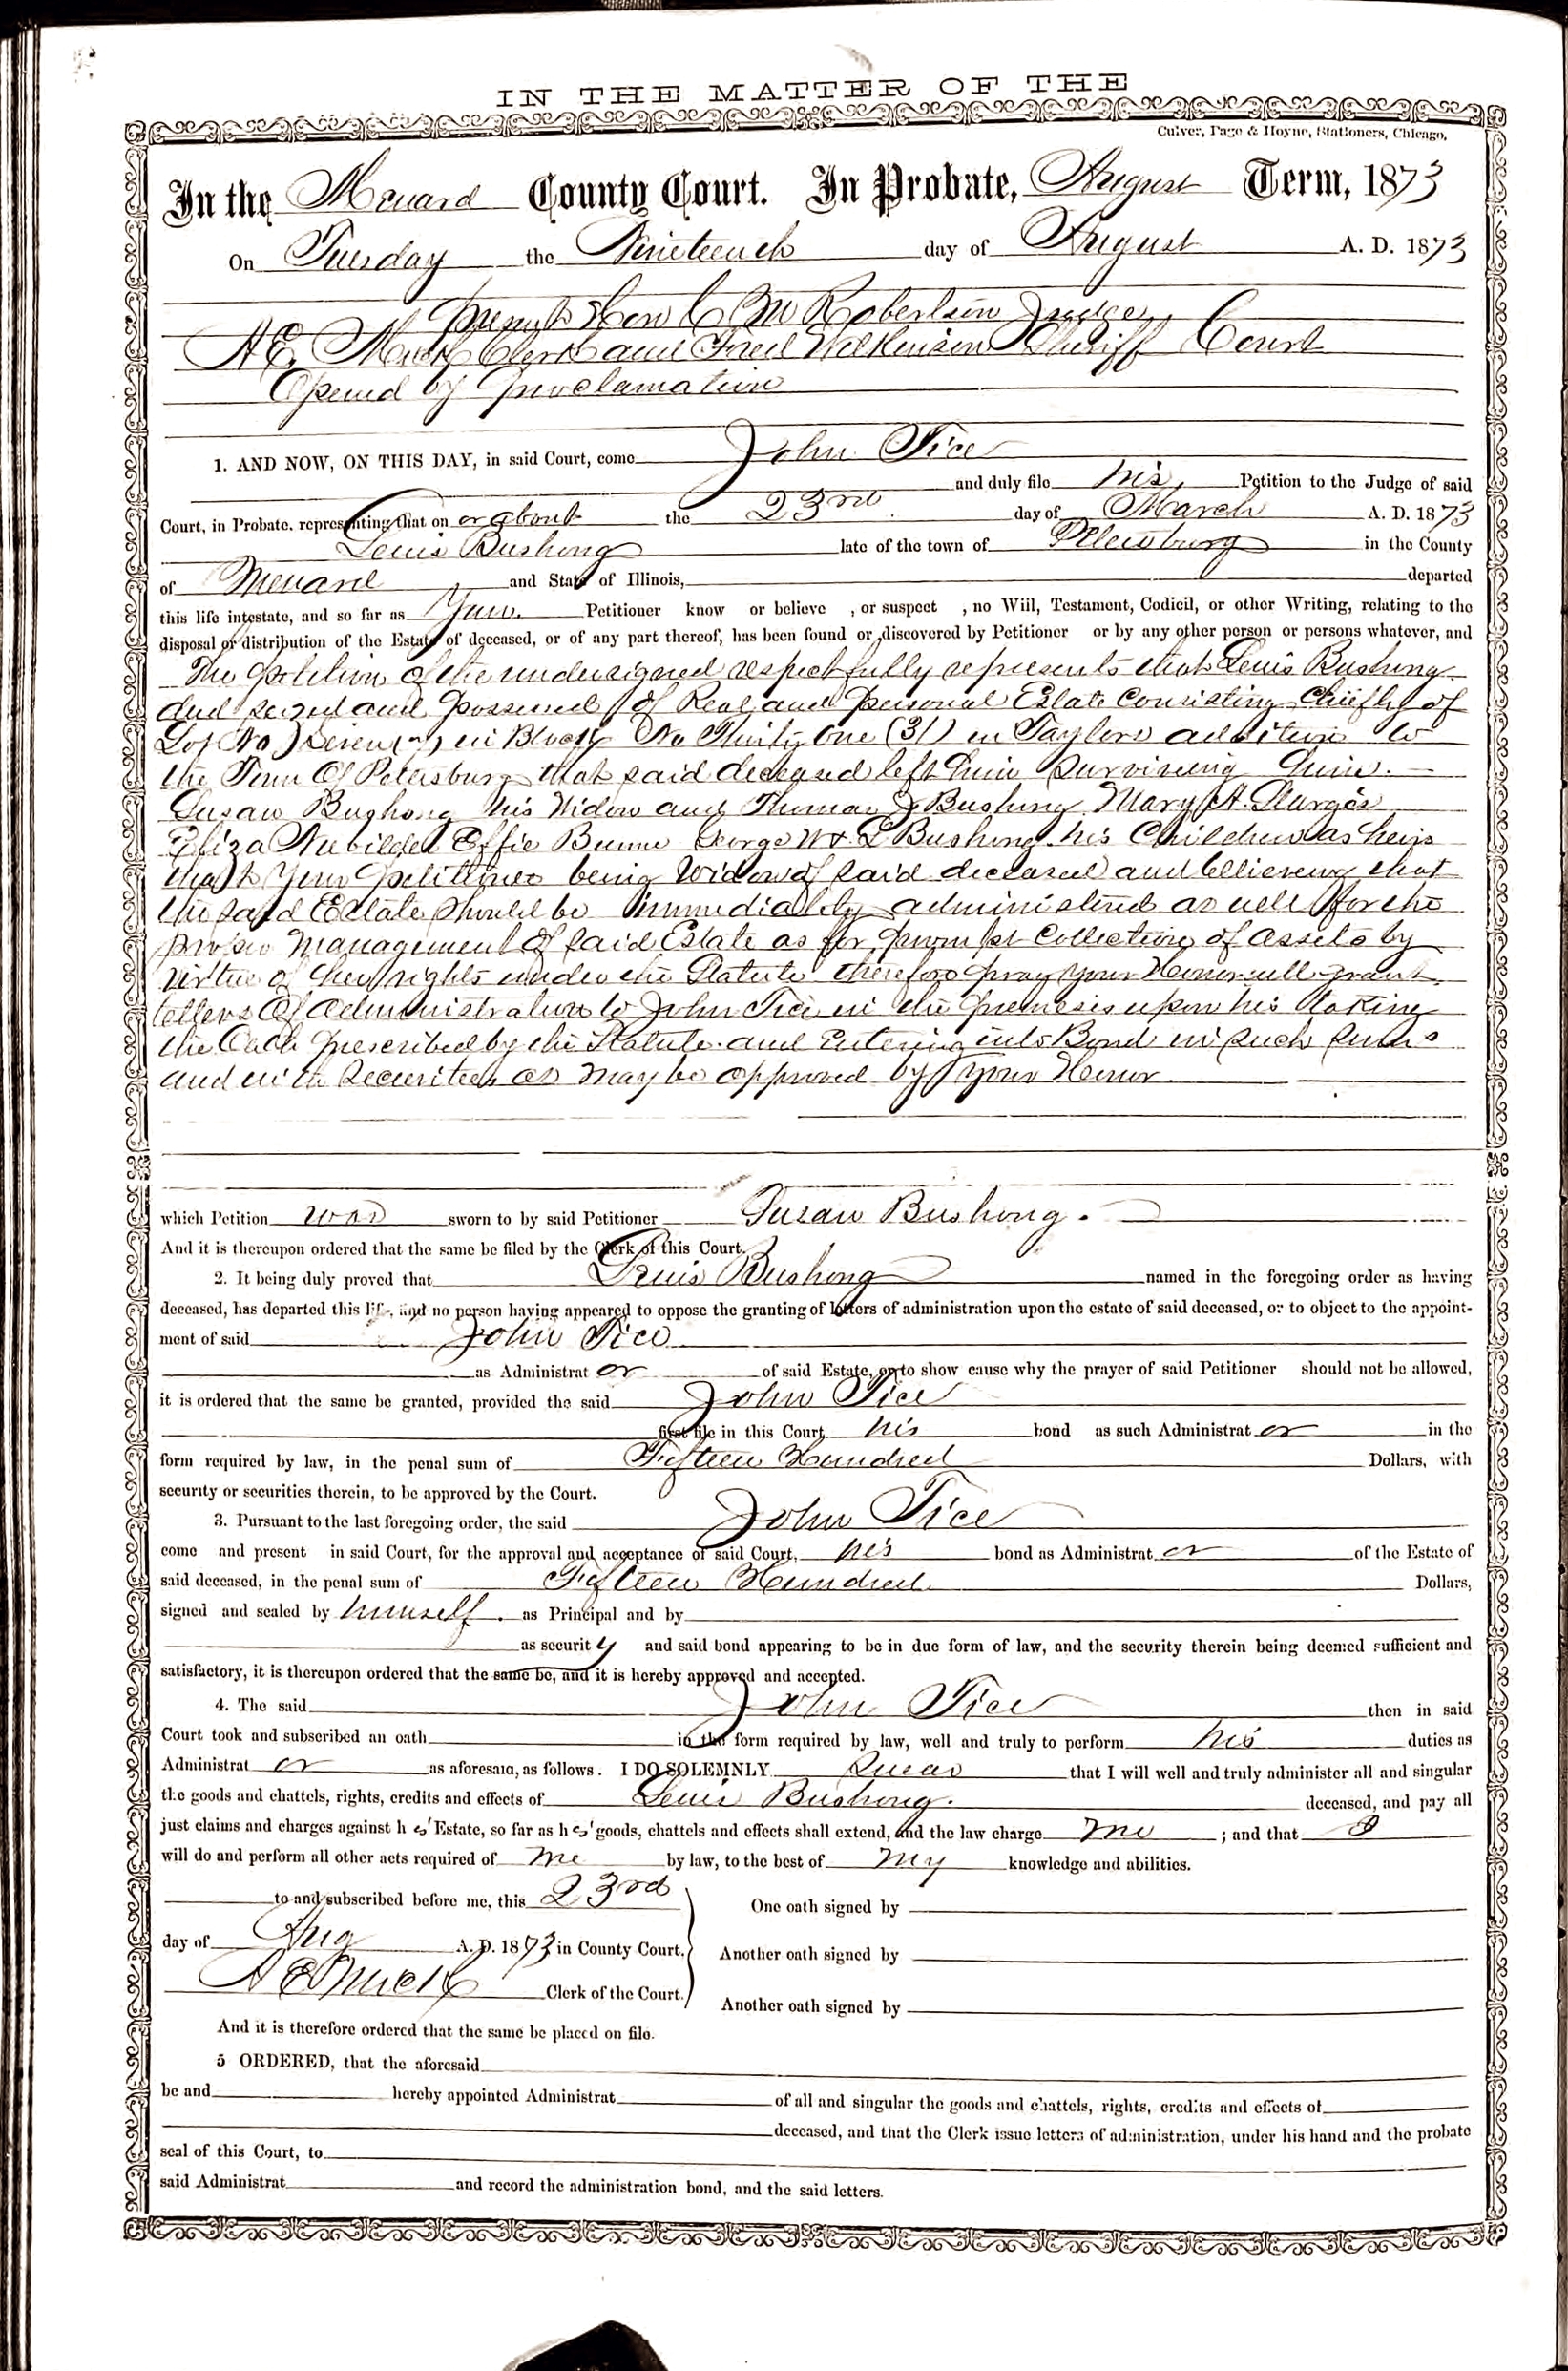 IN THE MATTER OF THE
Culver, Page & Hoyne, Stationers, Chicago,
In the Menard County Court. In Probate, August Term, 1873
On Tuesday the Nineteenth day of August A. D. 1873
Present Hon C M Robertson Judge,
A E Mick Clerk and Fred Wilkinson Sheriff Court
Opened by Proclamation
1. AND NOW, ON THIS DAY, in said Court, come John Tice
and duly file his Petition to the Judge of said
Court, in Probate, representing that on or about the 23rd day of March A. D. 1873
Lewis Bushong late of the town of Petersburg in the County
of Menard and State of Illinois, departed
this life intestate, and so far as Your Petitioner know or believe , or suspect , no Will, Testament, Codicil, or other Writing, relating to the
disposal or distribution of the Estate of deceased, or of any part thereof, has been found or discovered by Petitioner or by any other person or persons whatever, and
The petition of the undersigned respectfully represents that Lewis Bushong
died seized and possessed of Real and personal Estate Consisting Chiefly of
Lot No Seven (7) in Block No Thirty One (31) in Taylors addition to
the Town Of Petersburg that said deceased left him surviving him.
Susan Bushong his Widow and Thomas J Bushong Mary A. Sturgis
Eliza Effie Bunn George W & L Bushong his Children as heirs
that Your petitioner being Widow of said deceased and believing that
the said Estate should be immediately administered as well for the
proper Management of said Estate as for prompt Collection of assets by
virtue of her rights under the Statute therefore pray your Honor will grant
letters Of administration to John Tice in the premises upon his taking
the Oath prescribed by the Statute and Entering into Bond in such sum
and with Securities as may be approved by Your Honor.
which Petition was sworn to by said Petitioner Susan Bushong.
And it is thereupon ordered that the same be filed by the Clerk of this Court.
2. It being duly proved that Lewis Bushong named in the foregoing order as having
deceased, has departed this life, and no person having appeared to oppose the granting of letters of administration upon the estate of said deceased, or to object to the appoint-
ment of said John Tice
as Administrat or of said Estate, or to show cause why the prayer of said Petitioner should not be allowed,
it is ordered that the same be granted, provided the said John Tice
first file in this Court his bond as such Administrat or in the
form required by law, in the penal sum of Fifteen Hundred Dollars, with
security or securities therein, to be approved by the Court.
3. Pursuant to the last foregoing order, the said John Tice
come and present in said Court, for the approval and acceptance of said Court, his bond as Administrat or of the Estate of
said deceased, in the penal sum of Fifteen Hundred Dollars,
signed and sealed by himself. as Principal and by
as securit y and said bond appearing to be in due form of law, and the security therein being deemed sufficient and
satisfactory, it is thereupon ordered that the same be, and it is hereby approved and accepted.
4. The said John Tice then in said
Court took and subscribed an oath in the form required by law, well and truly to perform his duties as
Administrat or as aforesaid, as follows. I DO SOLEMNLY Swear that I will well and truly administer all and singular
the goods and chattels, rights, credits and effects of Lewis Bushong. deceased, and pay all
just claims and charges against h is Estate, so far as h is goods, chattels and effects shall extend, and the law charge me ; and that I
will do and perform all other acts required of me by law, to the best of my knowledge and abilities.
to and subscribed before me, this 23rd
day of Aug A. D. 1873 in County Court.
A E Mick Clerk of the Court.
One oath signed by
Another oath signed by
Another oath signed by
And it is therefore ordered that the same be placed on file.
5 ORDERED, that the aforesaid
be and hereby appointed Administrat of all and singular the goods and chattels, rights, credits and effects of
deceased, and that the Clerk issue letters of administration, under his hand and the probate
seal of this Court, to
said Administrat and record the administration bond, and the said letters.